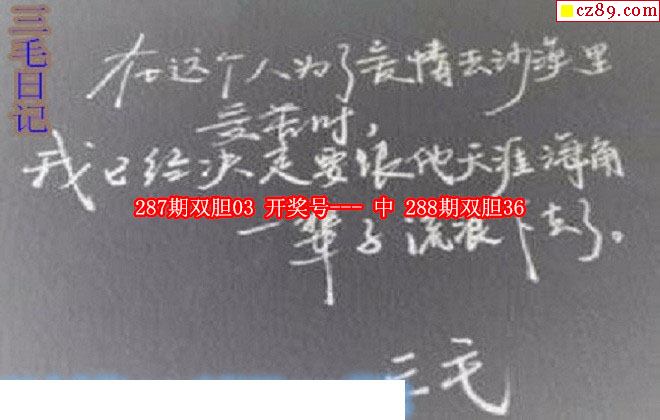 cz89.com
三毛日记
在这个人为了爱情去沙漠里
受苦时,
我已经决定要跟他天涯海角
287期双胆03 开奖号--- 中 288期双胆36
一辈子流浪下去了。
三毛